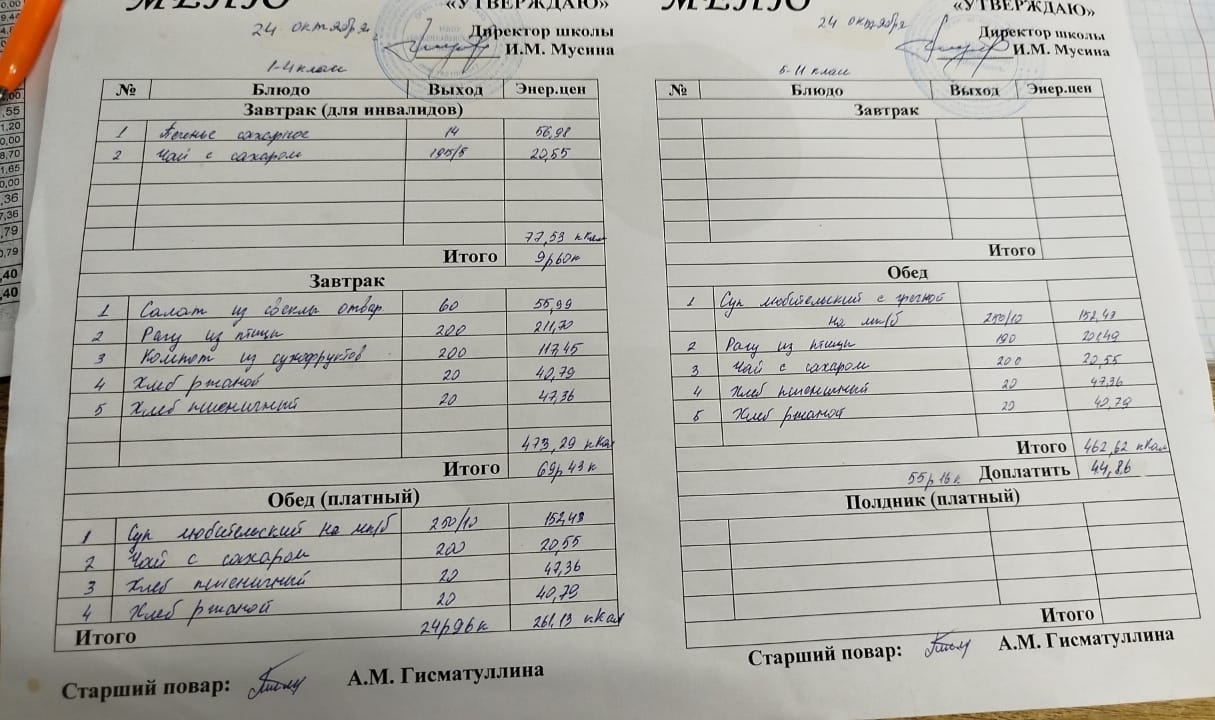 МЕНЮ
«УТВЕРЖДАЮ»
24 октября
Директор школы
И.М. Мусина
1-4 класс
№ Блюдо Выход Энер.цен
Завтрак (для инвалидов)
1 Печенье сахарное 14 56,98
2 Чай с сахаром 195/5 20,55
77,53 кКал
Итого 9р60к
Завтрак
1 Салат из свеклы отвар 60 55,99
2 Рагу из птицы 200 211,70
3 Компот из сухофруктов 200 117,45
4 Хлеб ржаной 20 40,79
5 Хлеб пшеничный 20 47,36
473,29 кКал
Итого 69р43к
Обед (платный)
1 Суп любительский на мп/б 250/10 152,43
2 Чай с сахаром 200 20,55
3 Хлеб пшеничный 20 47,36
4 Хлеб ржаной 20 40,79
Итого 24р96к 261,13 кКал
Старший повар: А.М. Гисматуллина
МЕНЮ
«УТВЕРЖДАЮ»
24 октября
Директор школы
И.М. Мусина
5-11 класс
№ Блюдо Выход Энер.цен
Завтрак
Итого
Обед
1 Суп любительский с гречкой
на мп/б 250/10 152,43
2 Рагу из птицы 190 201,49
3 Чай с сахаром 200 20,55
4 Хлеб пшеничный 20 47,36
5 Хлеб ржаной 20 40,79
Итого 462,62 кКал
55р16к Доплатить 44,86
Полдник (платный)
Итого
Старший повар: А.М. Гисматуллина